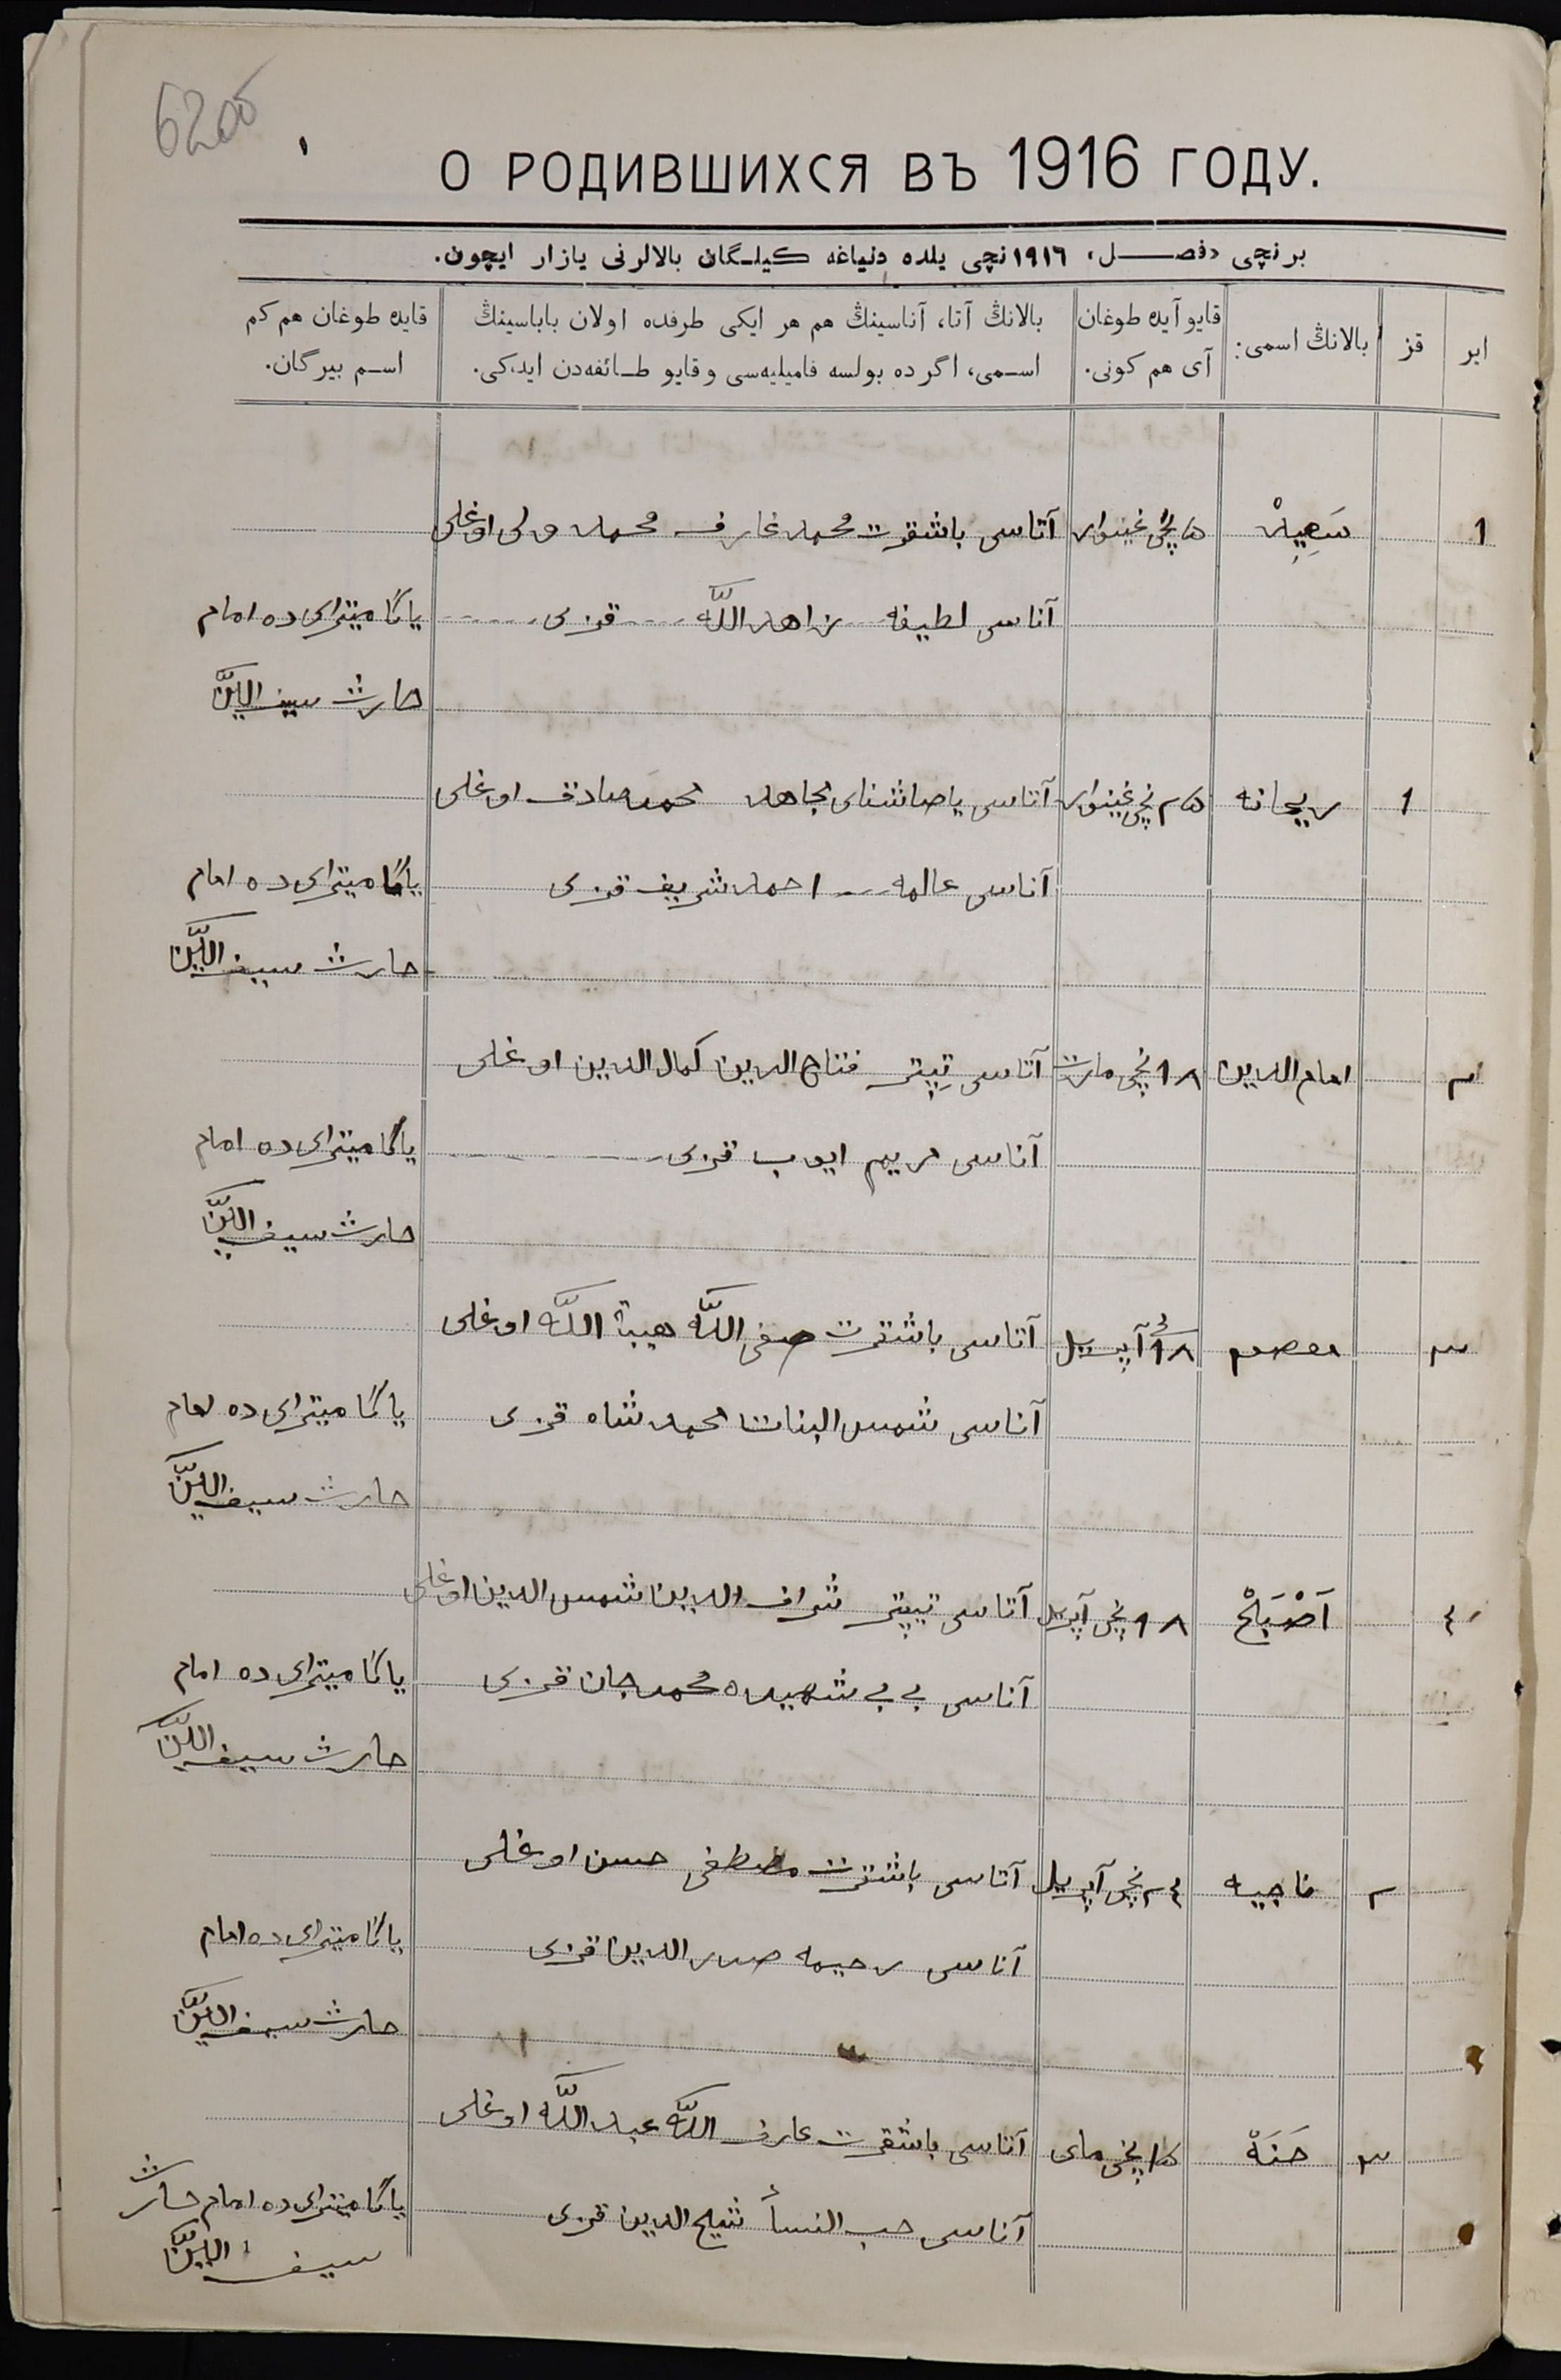 6200
О РОДИВШИХСЯ ВЪ 1916 ГОДУ.
برنچی «فصل» ١٩١٦نچی یلده دنیاغه کیلگان بالالرنی یازار ایچون.
ایر
قز
بالانڭ اسمی:
قایو آیده طوغان
آی هم کونی.
بالانڭ آتا، آناسینڭ هم هر ایکی طرفده اولان باباسینڭ
اسمی، اگر ده بولسه فامیلیه‌سی و قایو طائفه‌دن ایدکی.
قایده طوغان هم کم
اسم بیرگان.
١ ٥نچی غینوار آتاسی باشقرت محمد عارف محمد ولی اوغلی
آناسی لطیفه زاهد اللّٰه قزی یاڭا میترای ده امام
حارث سیف الدین
١ ریحانه ٢٥نچی غینوار آتاسی یاصاشنای مجاهد محمد صادق اوغلی
آناسی عالمه احمد شریف قزی یاڭا میترای ده امام
حارث سیف الدین
٢ امام الدین ١٨نچی مارت آتاسی تیپتر فتاح الدین کمال الدین اوغلی
آناسی مریم ایوب قزی یاڭا میترای ده امام
حارث سیف الدین
٣ معصوم ١٨ آپریل آتاسی باشقرت صفی اللّٰه هیبة اللّٰه اوغلی
آناسی شمس البنات محمد شاه قزی یاڭا میترای ده امام
حارث سیف الدین
٤ اَصْبَحْ ١٨نچی آپریل آتاسی تیپتر شراف الدین شمس الدین اوغلی
آناسی بی بی شهیده محمد جان قزی یاڭا میترای ده امام
حارث سیف الدین
٢ ناجیه ٢٤نچی آپریل آتاسی باشقرت مصطفی حسن اوغلی
آناسی رحیمه صدر الدین قزی یاڭا میترای ده امام
حارث سیف الدین
٣ حَنَهْ ١٥نچی مای آتاسی باشقرت عارف اللّٰه عبد اللّٰه اوغلی
آناسی حب النسأ شیخ الدین قزی یاڭا میترای ده امام حارث
سیف الدین